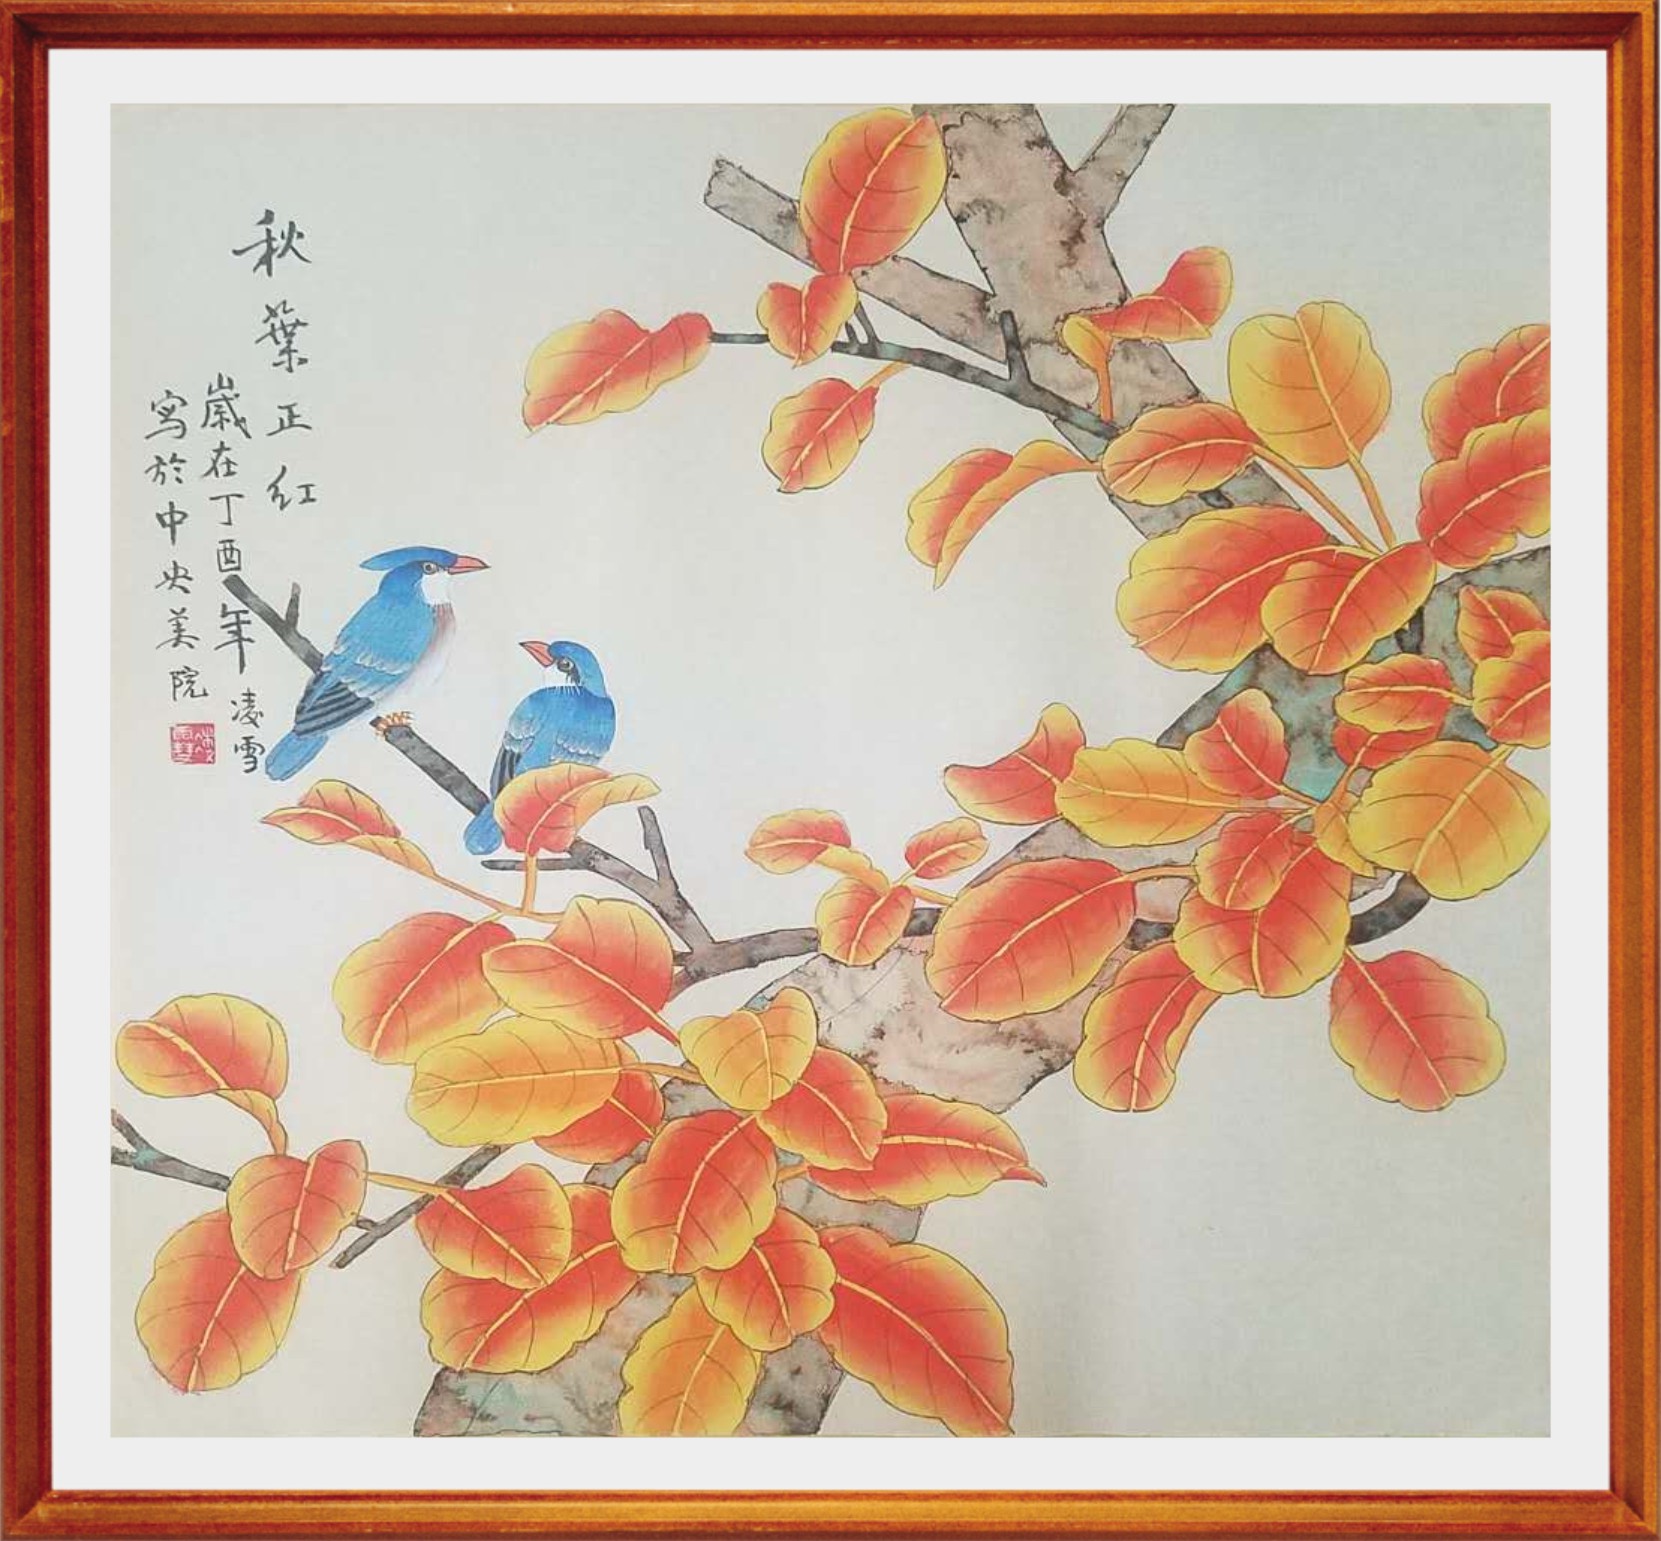 秋葉正红
歲在丁酉年凌雪
写於中央美院